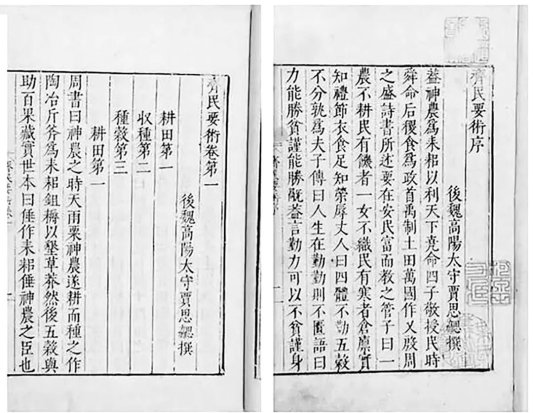 齊民要術序
後魏高陽太守賈思勰撰
蓋神農爲耒耜以利天下堯命四子敬授民時
舜命后稷食爲政首禹制土田萬國作乂殷周
之盛詩書所述要在安民富而教之管子曰一
農不耕民有饑者一女不織民有寒者倉廩實
知禮節衣食足知榮辱丈人曰四體不勤五穀
不分孰爲夫子傳曰人生在勤勤則不匱語曰
力能勝貧謹能勝禍蓋言勤力可以不貧謹身
齊民要術卷第一
後魏高陽太守賈思勰撰
耕田第一
收種第二
種穀第三
耕田第一
周書曰神農之時天雨粟神農遂耕而種之作
陶冶斤斧爲耒耜鉏耨以墾草莽然後五穀與
助百果藏實世本曰倕作耒耜倕神農之臣也